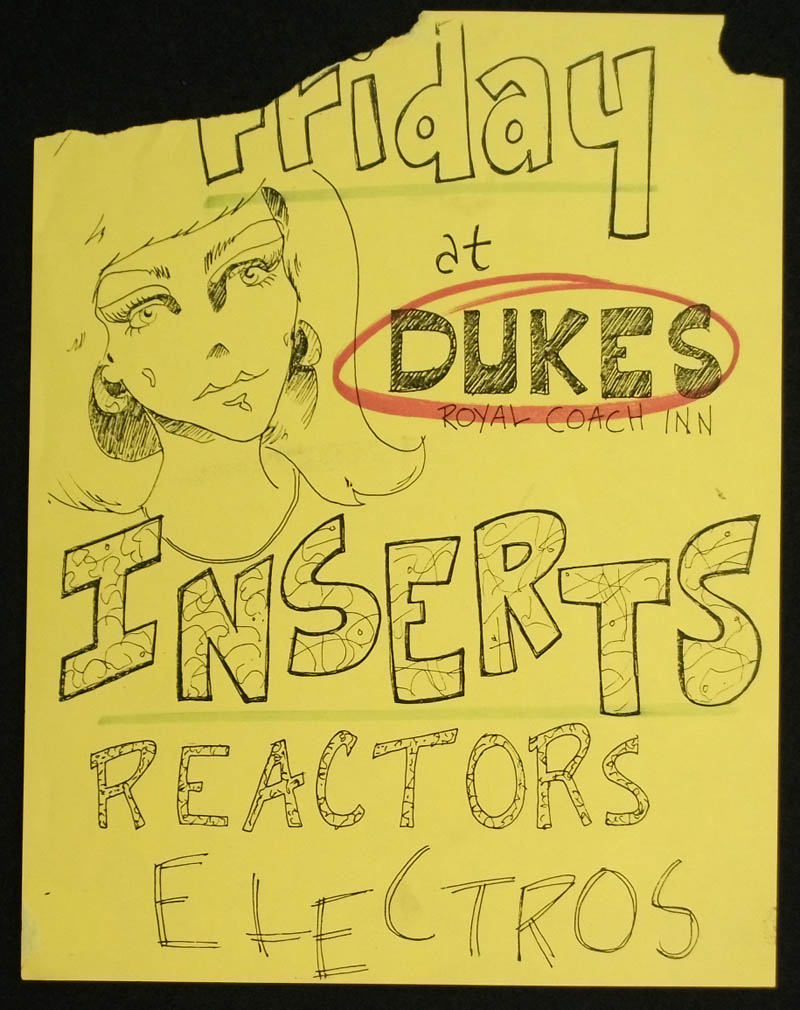 Friday
at
DUKES
ROYAL COACH INN
INSERTS
REACTORS
ELECTROS